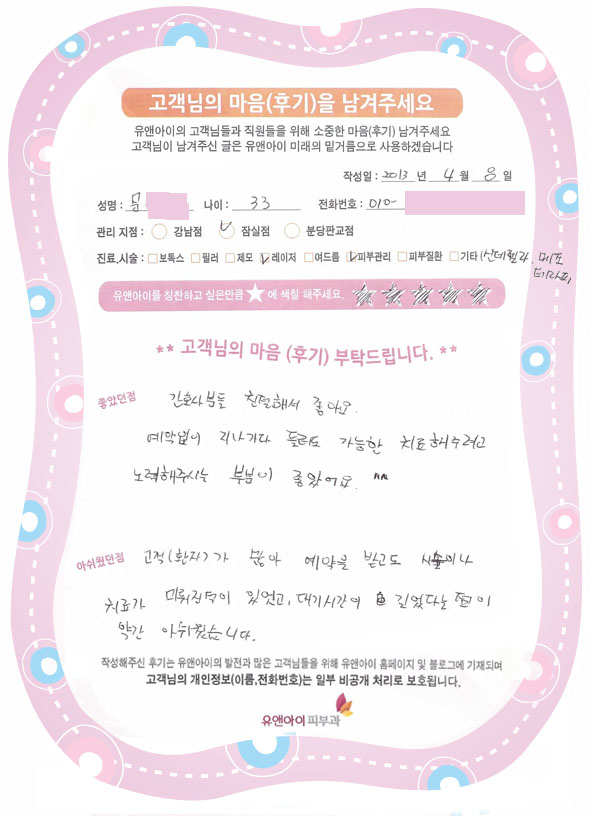 고객님의 마음(후기)을 남겨주세요
유앤아이의 고객님들과 직원들을 위해 소중한 마음(후기) 남겨주세요
고객님이 남겨주신 글은 유앤아이 미래의 밑거름으로 사용하겠습니다
작성일 : 2013 년 4 월 8 일
성명 : 나이 : 33 전화번호 : 010-
관리 지점 : 강남점 잠실점 분당판교점
진료,시술 : 보톡스 필러 제모 레이저 여드름 피부관리 피부질환 기타 (신데렐라, 메조
테라피
유앤아이를 칭찬하고 싶은만큼 ★ 에 색칠 해주세요.
** 고객님의 마음 (후기) 부탁드립니다. **
좋았던점 간호사분들 친절해서 좋아요.
예약없이 지나가다 들려도 가능한 치료해주려고
노력해주시는 부분이 좋았어요. ^^
아쉬웠던점 고객(환자)가 많아 예약을 받고도 시술이나
치료가 미뤄진적이 있었고, 대기시간이 길었다는 점이
약간 아쉬웠습니다.
작성해주신 후기는 유앤아이의 발전과 많은 고객님들을 위해 유앤아이 홈페이지 및 블로그에 기재되며
고객님의 개인정보(이름,전화번호)는 일부 비공개 처리로 보호됩니다.
유앤아이 피부과